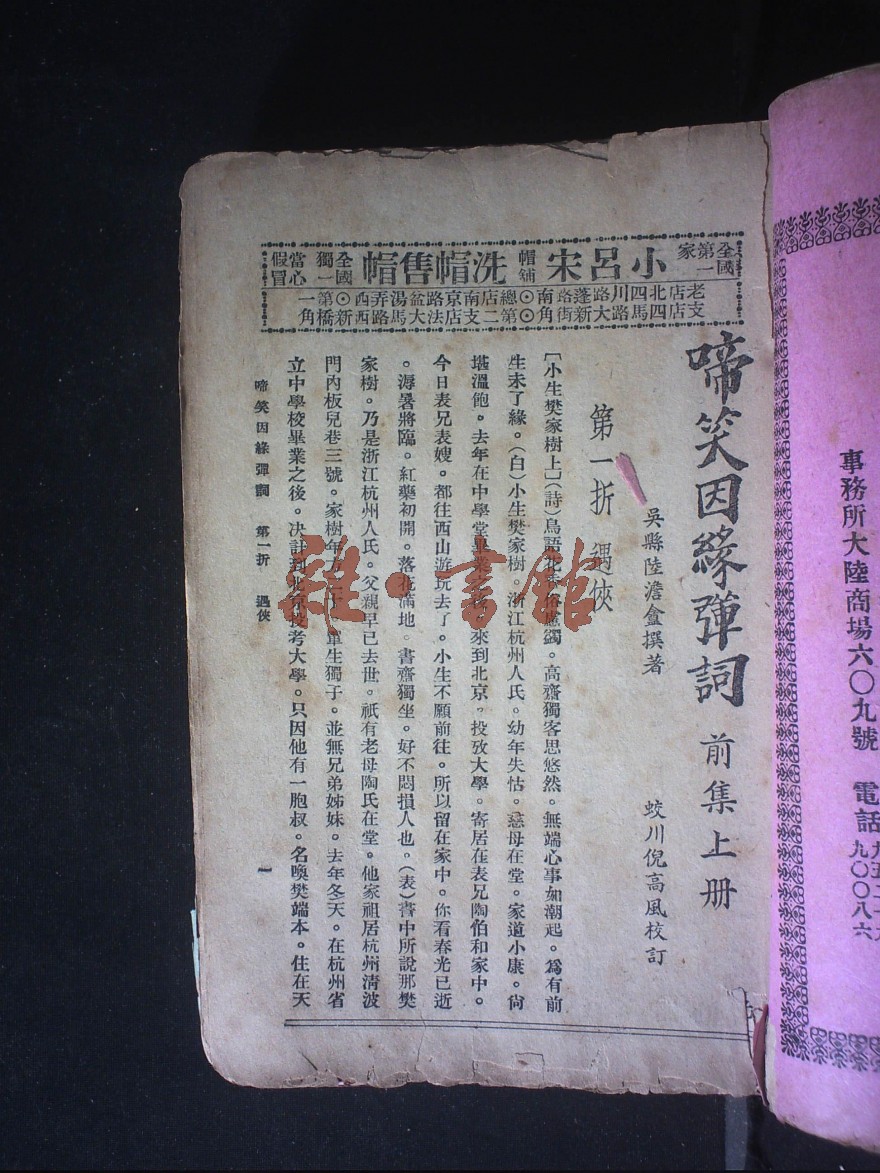 全國第一家 小呂宋帽舖 洗帽售帽 全國獨一 當心假冒
老店北四川路蓬路南⊙總店南京路盆湯弄西⊙第一
支店四馬路大新街角⊙第二支店法大馬路西新橋角
啼笑因緣彈詞 前集上册
吳縣陸澹盦撰著 蛟川倪高風校訂
第一折 遇俠
[小生樊家樹上](詩)鳥語花香俗慮蠲。高齋獨客思悠然。無端心事如潮起。爲有前
生未了緣。(白)小生樊家樹。浙江杭州人氏。幼年失怙。慈母在堂。家道小康。尙
堪溫飽。去年在中學堂畢業之後。來到北京。投攷大學。寄居在表兄陶伯和家中。
今日表兄表嫂。都往西山游玩去了。小生不願前往。所以留在家中。你看春光已近
。溽暑將臨。紅藥初開。落花滿地。書齋獨坐。好不悶損人也。(表)書中所說那樊
家樹。乃是浙江杭州人氏。父親早已去世。祇有老母陶氏在堂。他家祖居杭州清波
門內板兒巷三號。家樹年方二十。單生獨子。並無兄弟姊妹。去年冬天。在杭州省
立中學校畢業之後。决計到北京投考大學。只因他有一胞叔。名喚樊端本。住在天
啼笑因緣彈詞 第一折 遇俠 一
事務所大陸商場六〇九號 電話
九〇〇八六
雜·書館